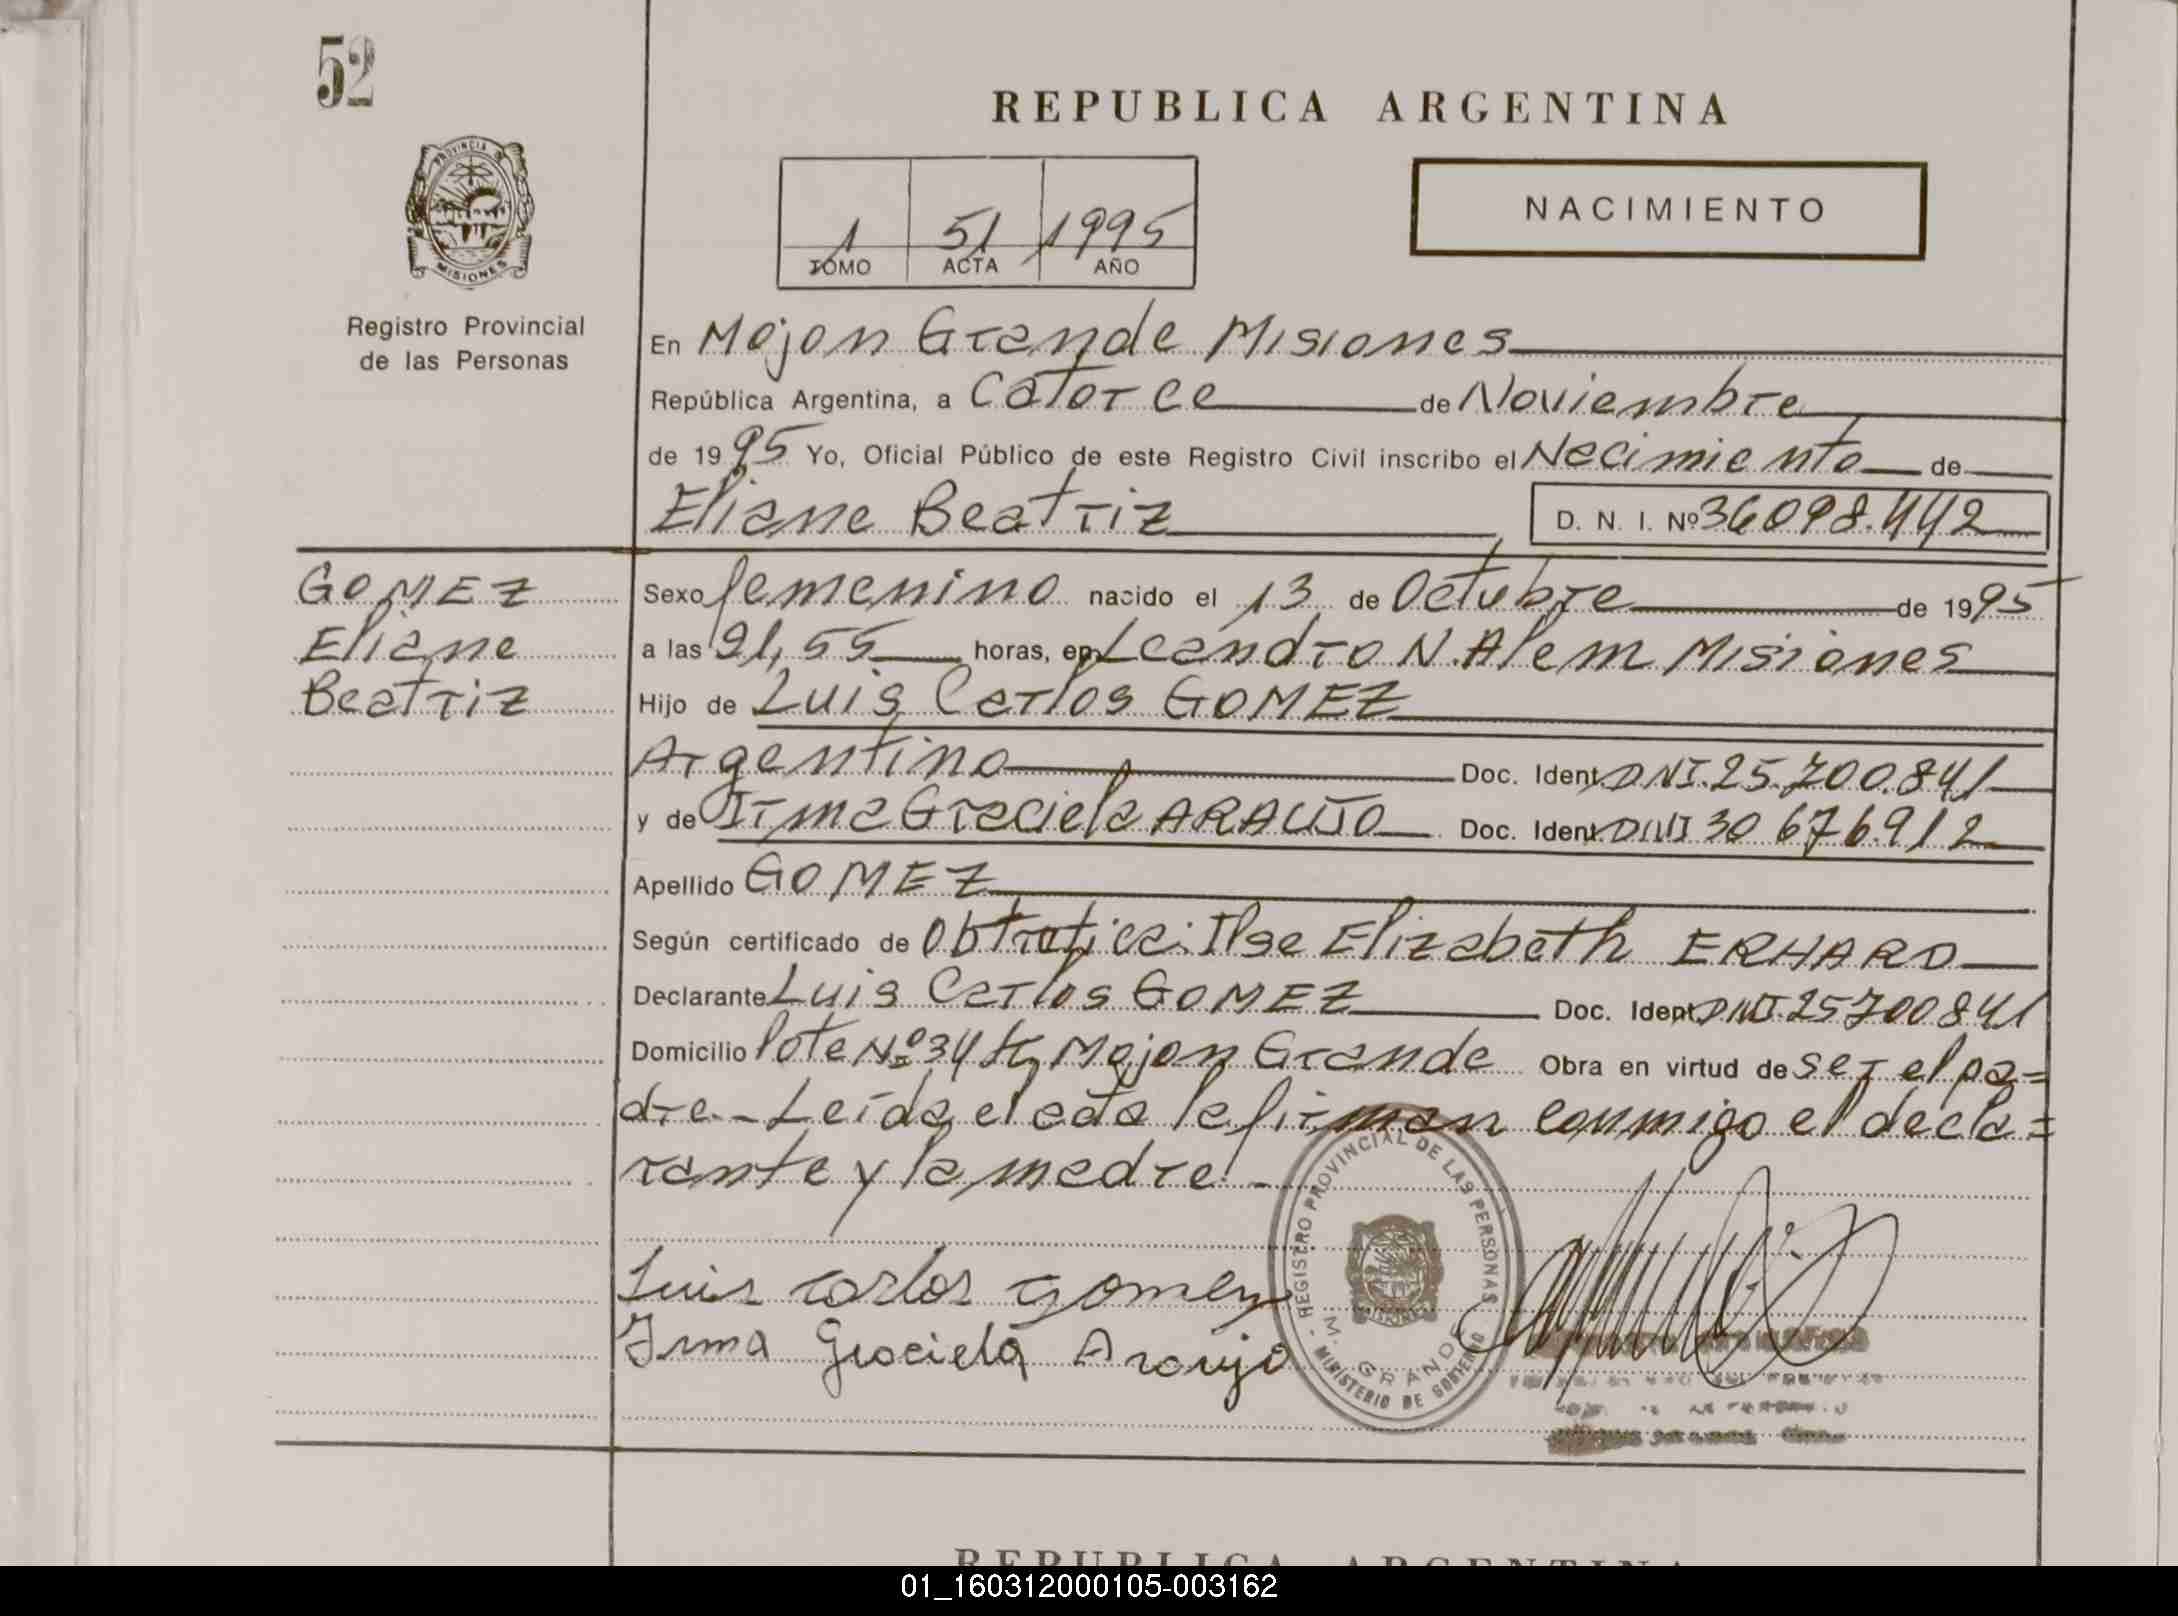 52
REPUBLICA ARGENTINA
PROVINCIA DE
MISIONES
1 51 1995
TOMO ACTA AÑO
NACIMIENTO
Registro Provincial
de las Personas
En Mojon Grande Misiones
República Argentina, a Catorce de Noviembre
de 1995 Yo, Oficial Público de este Registro Civil inscribo el Nacimiento de
Eliane Beatriz D. N. I. Nº 36098.442
GOMEZ
Eliane
Beatriz
Sexo femenino nacido el 13 de Octubre de 1995
a las 21,55 horas, en Leandro N. Alem Misiones
Hijo de Luis Carlos GOMEZ
Argentino Doc. Ident. DNI.25.700.841
y de Irma Graciela ARAUJO Doc. Ident. DNI 30 676.912
Apellido GOMEZ
Según certificado de Obtretica: Ilse Elizabeth ERHARD
Declarante Luis Carlos GOMEZ Doc. Ident. DNI.25700841
Domicilio lote Nº 34 Mojon Grande Obra en virtud de ser el pa=
dre.- Leída el acta la firman conmigo el decla=
rante y la madre.-
Luis Carlos Gomez
Irma Graciela Araujo
REGISTRO PROVINCIAL DE LAS PERSONAS
MISIONES
M. GRANDE
- MINISTERIO DE GOBIERNO
REPUBLICA ARGENTINA
01_160312000105-003162